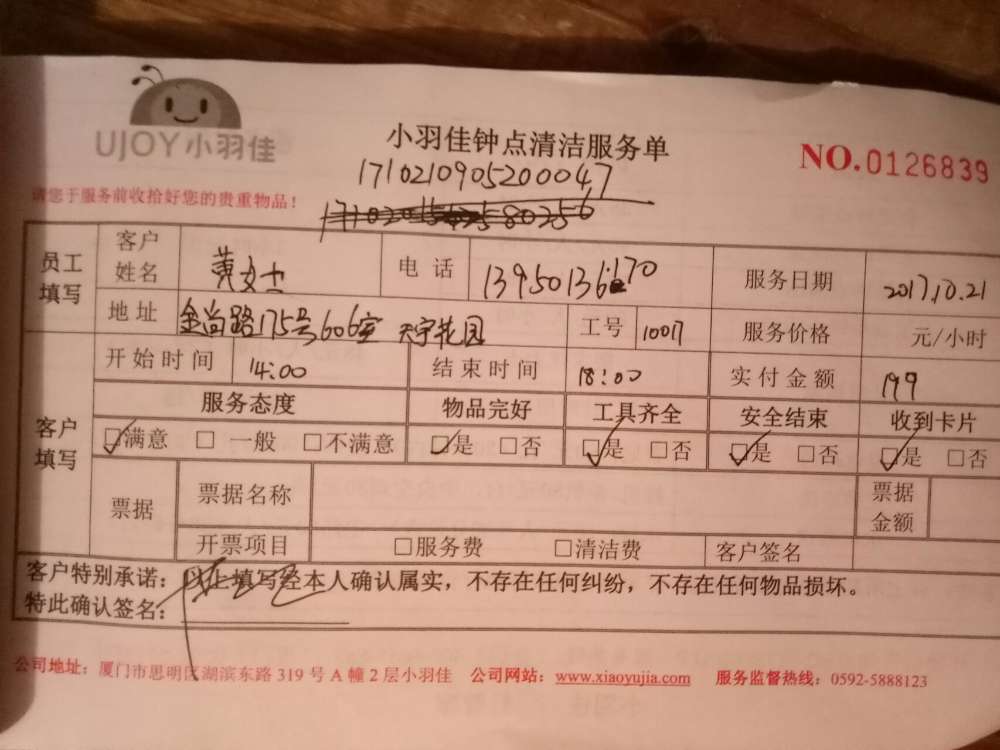 UJOY小羽佳
小羽佳钟点清洁服务单
NO.0126839
1710210905200047
请您于服务前收拾好您的贵重物品!
员工填写 客户姓名 黄女士 电话 服务日期 2017.10.21
地址 金尚路175号606室 天宇花园 工号 10017 服务价格 元/小时
客户填写 开始时间 14:00 结束时间 18:00 实付金额 199
服务态度 物品完好 工具齐全 安全结束 收到卡片
☑满意 □一般 □不满意 ☑是 □否 ☑是 □否 ☑是 □否 ☑是 □否
票据 票据名称 票据金额
开票项目 □服务费 □清洁费 客户签名
客户特别承诺:以上填写经本人确认属实,不存在任何纠纷,不存在任何物品损坏。
特此确认签名:
公司地址:厦门市思明区湖滨东路 319 号 A 幢 2 层小羽佳 公司网站:www.xiaoyujia.com 服务监督热线:0592-5888123